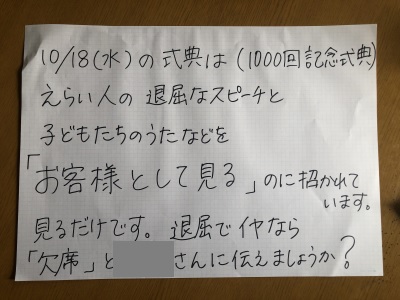 10/18(水)の式典は(1000回記念式典)
えらい人の退屈なスピーチと
子どもたちのうたなどを
「お客様として見る」のに招かれて
います。
見るだけです。退屈でイヤなら
「欠席」と さんに伝えましょうか?